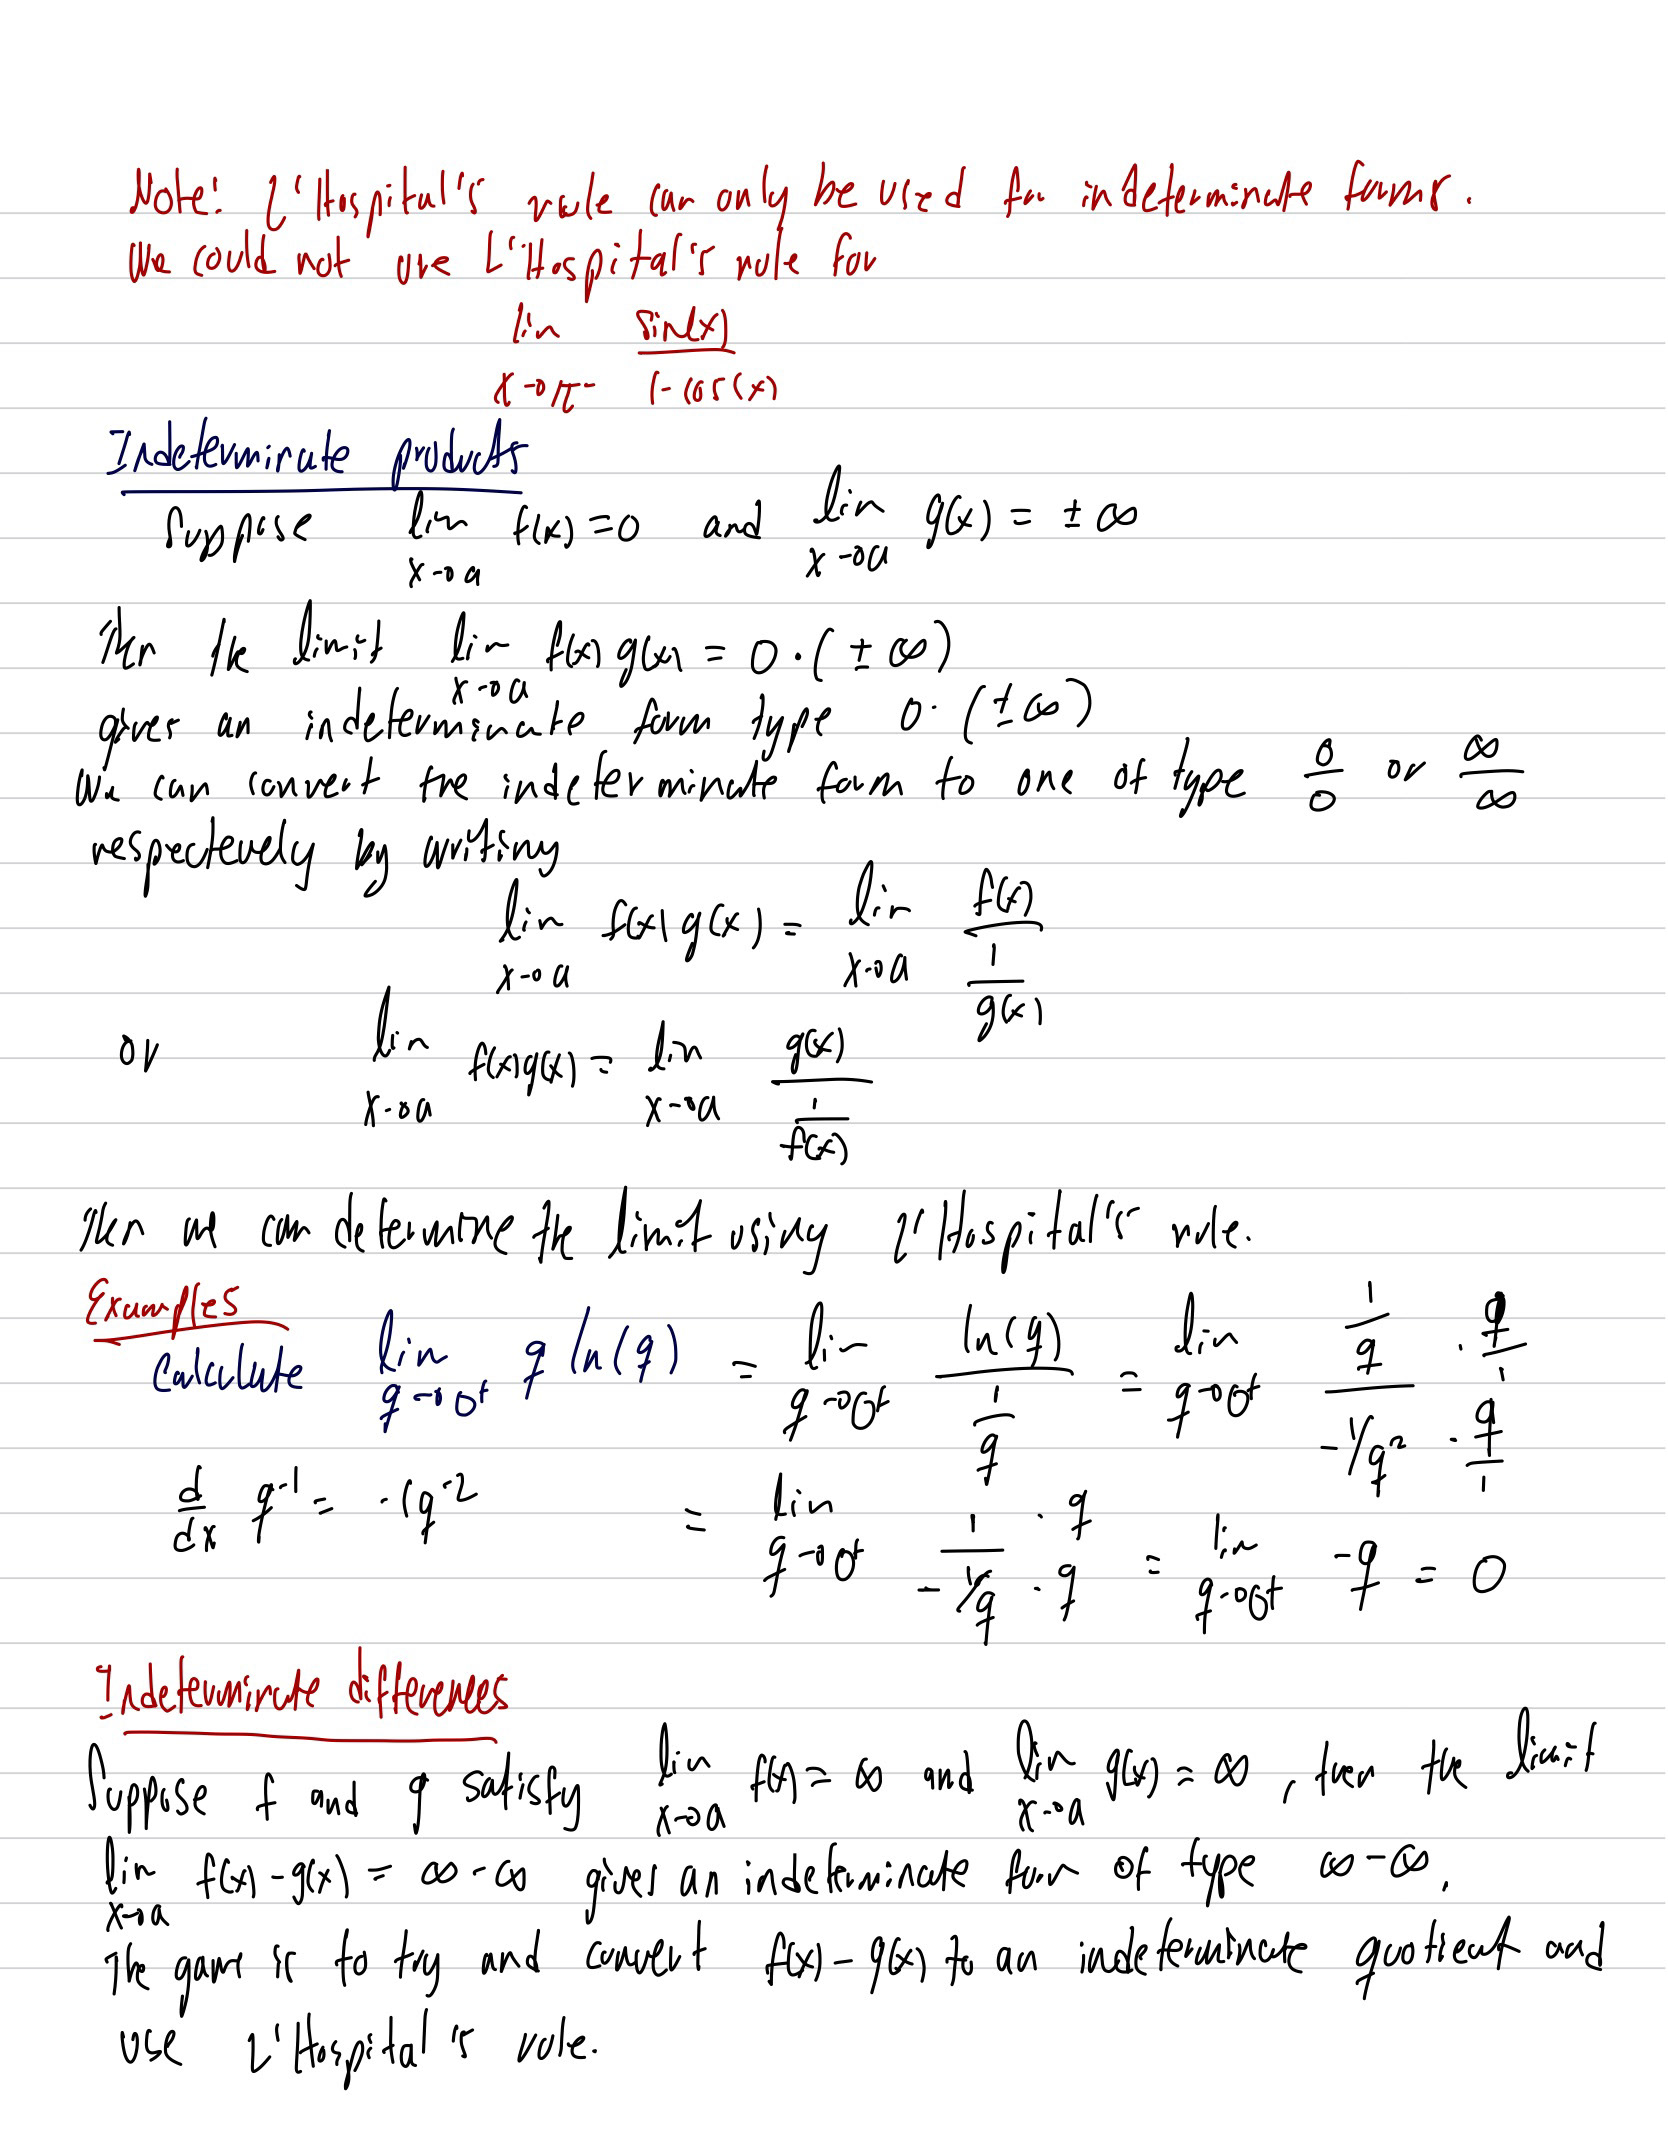 Note: L'Hospital's rule can only be used for indeterminate forms.
We could not use L'Hospital's rule for
lim x→π- sin(x) / 1-cos(x)
Indeterminate products
Suppose lim x→a f(x) = 0 and lim x→a g(x) = ± ∞
Then the limit lim x→a f(x) g(x) = 0 · (± ∞)
gives an indeterminate form type 0 · (± ∞)
We can convert the indeterminate form to one of type 0/0 or ∞/∞
respectevely by writing
lim x→a f(x) g(x) = lim x→a f(x) / (1/g(x))
or lim x→a f(x) g(x) = lim x→a g(x) / (1/f(x))
Then we can determine the limit using L'Hospital's rule.
Examples
Calculate lim q→0+ q ln(q) = lim q→0+ ln(q) / (1/q) = lim q→0+ (1/q · q/1) / (-1/q² · q/1)
d/dx q⁻¹ = -1q⁻² = lim q→0+ (1 · q) / (-1/q · q) = lim q→0+ -q = 0
Indeterminate differences
Suppose f and g satisfy lim x→a f(x) = ∞ and lim x→a g(x) = ∞, then the limit
lim x→a f(x) - g(x) = ∞ - ∞ gives an indeterminate form of type ∞ - ∞.
The game is to try and convert f(x) - g(x) to an indeterminate quotient and
use L'Hospital's rule.